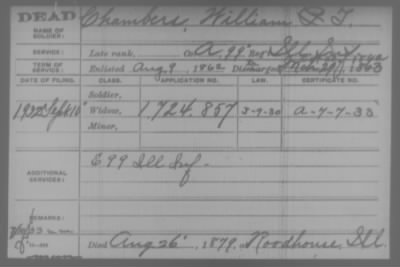 DEAD Chambers, William F. T.
NAME OF SOLDIER:
SERVICE: Late rank, Co. A, 99" Reg't Ill. Inf.
TERM OF SERVICE: Enlisted Aug. 9, 1862 Discharged 1863
DATE OF FILING. CLASS. APPLICATION NO. LAW. CERTIFICATE NO.
Soldier,
1932 Sept 10 Widow, 1.724.857 A-7-7-33
Minor,
ADDITIONAL SERVICES: E 99 Ill Inf.
REMARKS:
Died Aug 26, 1879, at Roodhouse, Ill.